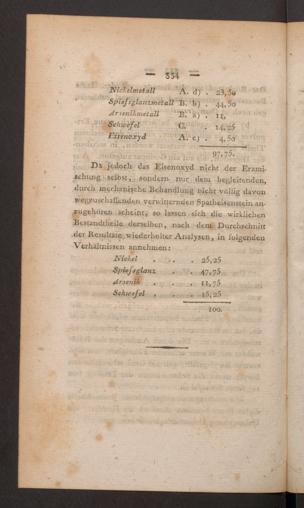 — 334 —
Nickelmetall A. d) . 23,50
Spießglanzmetall B. b) . 44,50
Arsenikmetall B. a) . 11,
Schwefel C. . 14,25
Eisenoxyd A. c) . 4,50
97,75.
Da jedoch das Eisenoxyd nicht der Erzmi-
schung selbst, sondern nur dem begleitenden,
durch mechanische Behandlung nicht völlig davon
wegzuschaffenden verwitternden Spatheisenstein an-
zugehören scheint, so lassen sich die wirklichen
Bestandtheile derselben, nach dem Durchschnitt
der Resultate wiederholter Analysen, in folgenden
Verhältnissen annehmen:
Nickel . . . 25,25
Spießglanz . . 47,75
Arsenik . . . 11,75
Schwefel . . . 15,25
100.